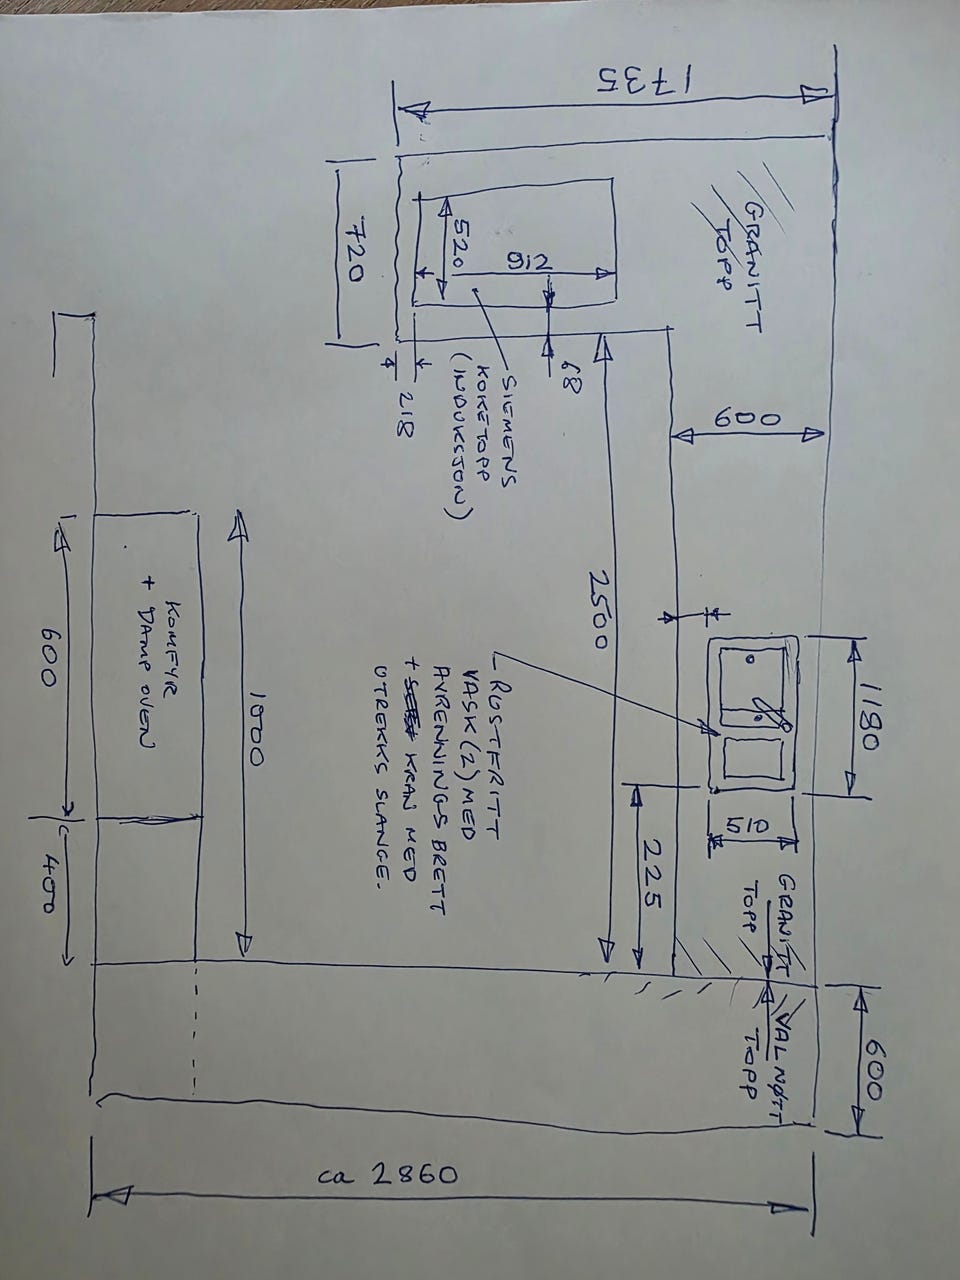 1735
GRANITT
TOPP
720
520
912
68
218
SIEMENS
KOKETOPP
(INDUKSJON)
600
2500
1180
510
225
RUSTFRITT
VASK (2) MED
AVRENNINGS BRETT
+ KRAN MED
UTREKKS SLANGE.
KOMFYR
+ DAMP OVEN
600
1000
400
GRANITT
TOPP
VALNØTT
TOPP
600
ca 2860